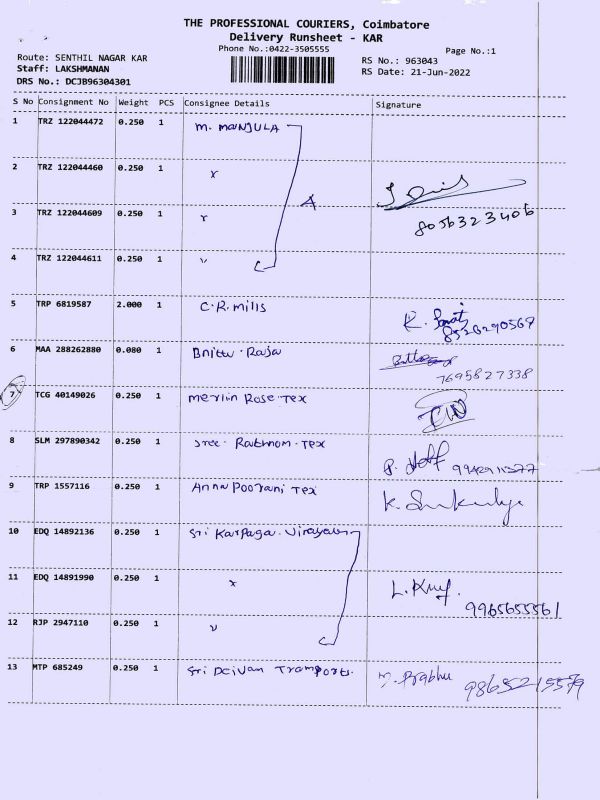 THE PROFESSIONAL COURIERS, Coimbatore
Delivery Runsheet - KAR
Phone No.:0422-3505555
Page No.:1
Route: SENTHIL NAGAR KAR
RS No.: 963043
Staff: LAKSHMANAN
RS Date: 21-Jun-2022
DRS No.: DCJB96304301
S No Consignment No Weight PCS Consignee Details Signature
1 TRZ 122044472 0.250 1 M. MANJULA
2 TRZ 122044460 0.250 1 "
3 TRZ 122044609 0.250 1 "
8056323406
4 TRZ 122044611 0.250 1 "
5 TRP 6819587 2.000 1 C.R. mills K.
8526290567
6 MAA 288262880 0.080 1 Raja
7695827338
7 TCG 40149026 0.250 1 merlin Rose Tex
8 SLM 297890342 0.250 1 Sree Tex
9 TRP 1557116 0.250 1 Anna Poorani Tex K.
10 EDQ 14892136 0.250 1 Sri Karpaga Vinayaga
11 EDQ 14891990 0.250 1 " L.
9965655561
12 RJP 2947110 0.250 1 "
13 MTP 685249 0.250 1 Sri Deivan Transports M. Prabhu
9865215579